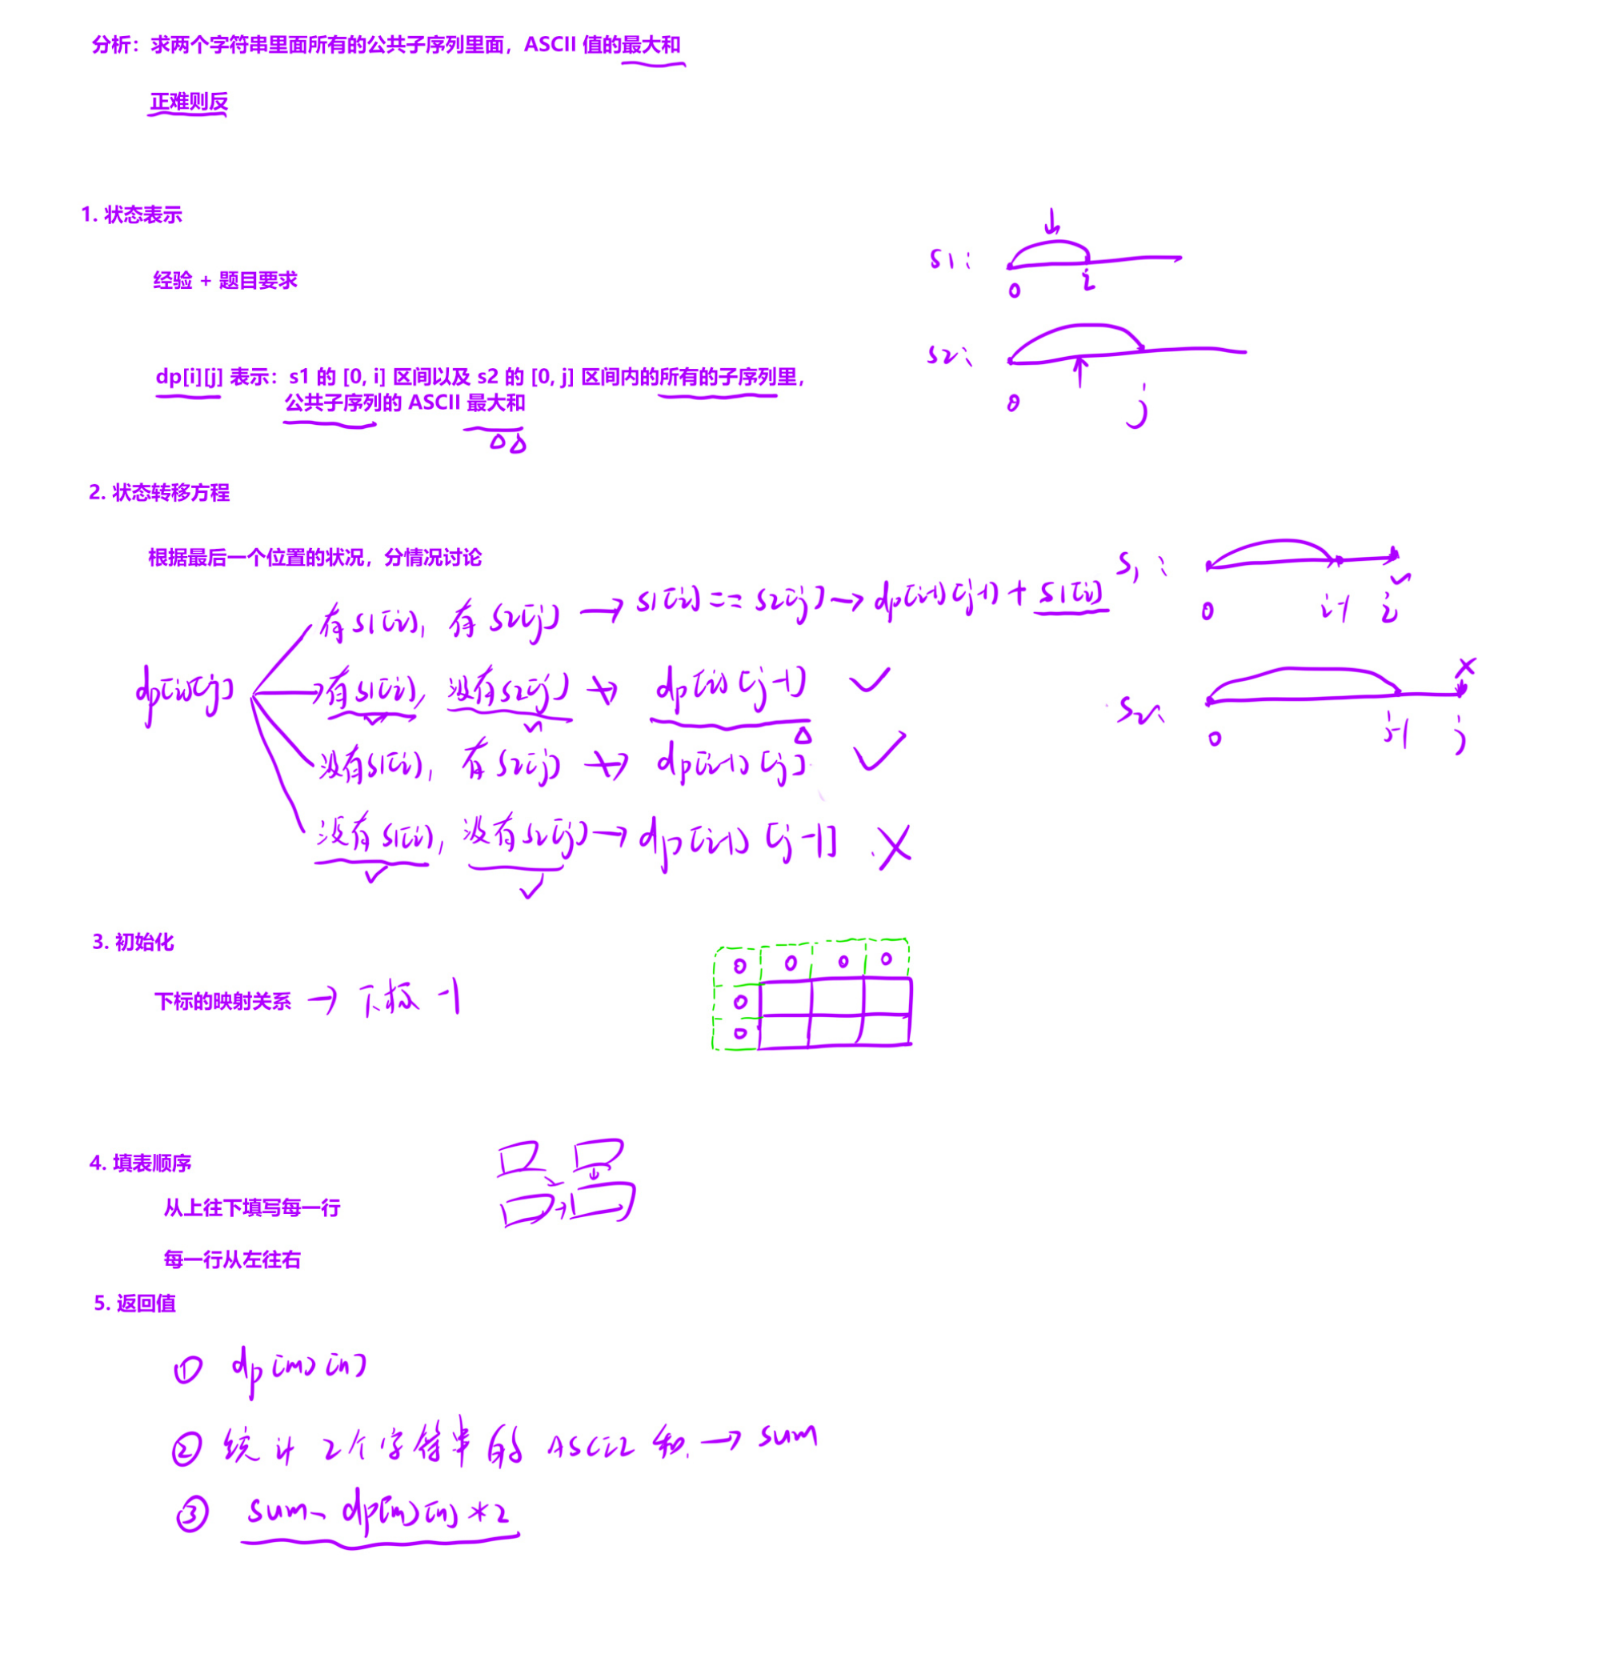 分析：求两个字符串里面所有的公共子序列里面，ASCII 值的最大和
正难则反
1. 状态表示
s1:
0 i
经验 + 题目要求
s2:
dp[i][j] 表示：s1 的 [0, i] 区间以及 s2 的 [0, j] 区间内的所有的子序列里，
公共子序列的 ASCII 最大和
0 j
2. 状态转移方程
根据最后一个位置的状况，分情况讨论
s1:
0 i-1 i
dp[i][j]
有s1[i], 有s2[j] → s1[i] == s2[j] → dp[i-1][j-1] + s1[i]
有s1[i], 没有s2[j] → dp[i][j-1] ✓
没有s1[i], 有s2[j] → dp[i-1][j] ✓
没有s1[i], 没有s2[j] → dp[i-1][j-1] ×
s2:
0 j-1 j
3. 初始化
下标的映射关系 → 下标 -1
0 0 0 0
0
0
4. 填表顺序
从上往下填写每一行
每一行从左往右
5. 返回值
① dp[m][n]
② 统计 2个字符串的 ASCII 和 → sum
③ sum - dp[m][n] * 2